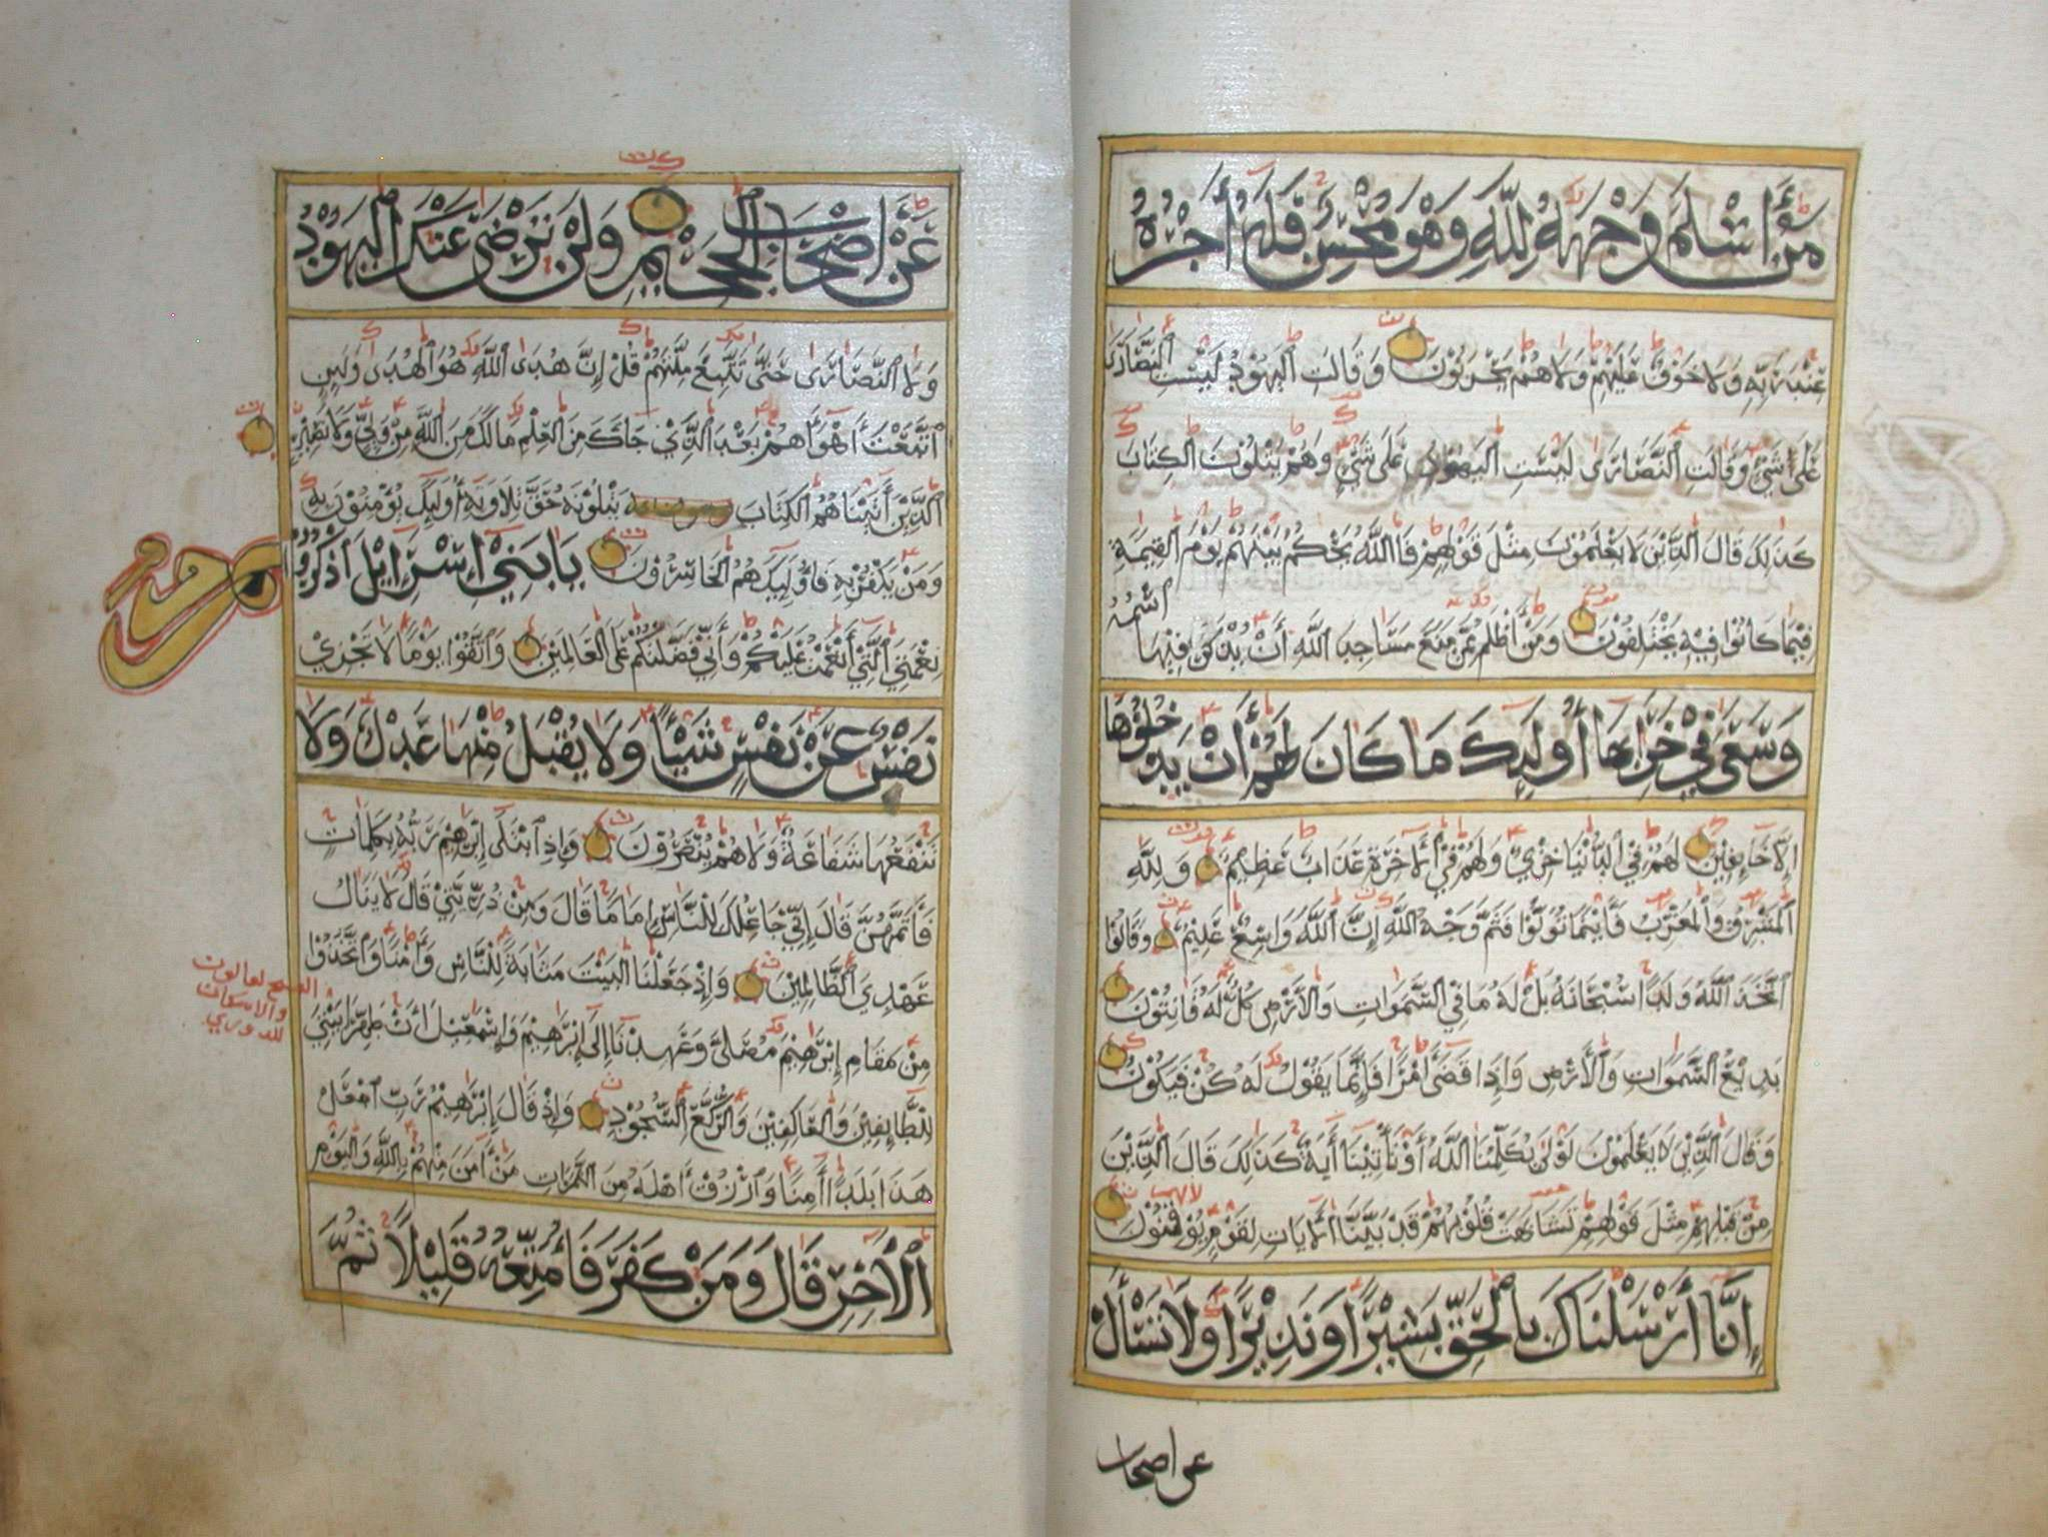 مَنْ أَسْلَمَ وَجْهَهُ لِلَّهِ وَهْوَ مُحْسِنٌ فَلَهُ أَجْرُهُ
عِنْدَ رَبِّهِ وَلَا خَوْفٌ عَلَيْهِمْ وَلَا هُمْ يَحْزَنُونَ وَقَالَتِ الْيَهُودُ لَيْسَتِ النَّصَارَى
عَلَى شَيْءٍ وَقَالَتِ النَّصَارَى لَيْسَتِ الْيَهُودُ عَلَى شَيْءٍ وَهُمْ يَتْلُونَ الْكِتَابَ
كَذَلِكَ قَالَ الَّذِينَ لَا يَعْلَمُونَ مِثْلَ قَوْلِهِمْ فَاللَّهُ يَحْكُمُ بَيْنَهُمْ يَوْمَ الْقِيمَةِ
فِيمَا كَانُوا فِيهِ يَخْتَلِفُونَ وَمَنْ أَظْلَمُ مِمَّنْ مَنَعَ مَسَاجِدَ اللَّهِ أَنْ يُذْكَرَ فِيهَا اسْمُهُ
وَسَعَى فِي خَرَابِهَا أُولَئِكَ مَا كَانَ لَهُمْ أَنْ يَدْخُلُوهَا
إِلَّا خَائِفِينَ لَهُمْ فِي الدُّنْيَا خِزْيٌ وَلَهُمْ فِي الْآخِرَةِ عَذَابٌ عَظِيمٌ وَلِلَّهِ
الْمَشْرِقُ وَالْمَغْرِبُ فَأَيْنَمَا تُوَلُّوا فَثَمَّ وَجْهُ اللَّهِ إِنَّ اللَّهَ وَاسِعٌ عَلِيمٌ وَقَالُوا
اتَّخَذَ اللَّهُ وَلَدًا سُبْحَانَهُ بَلْ لَهُ مَا فِي السَّمَوَاتِ وَالْأَرْضِ كُلٌّ لَهُ قَانِتُونَ
بَدِيعُ السَّمَوَاتِ وَالْأَرْضِ وَإِذَا قَضَى أَمْرًا فَإِنَّمَا يَقُولُ لَهُ كُنْ فَيَكُونُ
وَقَالَ الَّذِينَ لَا يَعْلَمُونَ لَوْلَا يُكَلِّمُنَا اللَّهُ أَوْ تَأْتِينَا آيَةٌ كَذَلِكَ قَالَ الَّذِينَ
مِنْ قَبْلِهِمْ مِثْلَ قَوْلِهِمْ تَشَابَهَتْ قُلُوبُهُمْ قَدْ بَيَّنَّا الْآيَاتِ لِقَوْمٍ يُوقِنُونَ
إِنَّا أَرْسَلْنَاكَ بِالْحَقِّ بَشِيرًا وَنَذِيرًا وَلَا تَسْأَلْ
عن اصحاب
عَنْ أَصْحَابِ الْجَحِيمِ وَلَنْ تَرْضَى عَنْكَ الْيَهُودُ
وَلَا النَّصَارَى حَتَّى تَتَّبِعَ مِلَّتَهُمْ قُلْ إِنَّ هُدَى اللَّهِ هُوَ الْهُدَى وَلَئِنِ
اتَّبَعْتَ أَهْوَاءَهُمْ بَعْدَ الَّذِي جَاءَكَ مِنَ الْعِلْمِ مَا لَكَ مِنَ اللَّهِ مِنْ وَلِيٍّ وَلَا نَصِيرٍ
الَّذِينَ آتَيْنَاهُمُ الْكِتَابَ يَتْلُونَهُ حَقَّ تِلَاوَتِهِ أُولَئِكَ يُؤْمِنُونَ بِهِ
وَمَنْ يَكْفُرْ بِهِ فَأُولَئِكَ هُمُ الْخَاسِرُونَ يَا بَنِي إِسْرَائِيلَ اذْكُرُوا
نِعْمَتِيَ الَّتِي أَنْعَمْتُ عَلَيْكُمْ وَأَنِّي فَضَّلْتُكُمْ عَلَى الْعَالَمِينَ وَاتَّقُوا يَوْمًا لَا تَجْزِي
نَفْسٌ عَنْ نَفْسٍ شَيْئًا وَلَا يُقْبَلُ مِنْهَا عَدْلٌ وَلَا
تَنْفَعُهَا شَفَاعَةٌ وَلَا هُمْ يُنْصَرُونَ وَإِذِ ابْتَلَى إِبْرَهِيمَ رَبُّهُ بِكَلِمَاتٍ
فَأَتَمَّهُنَّ قَالَ إِنِّي جَاعِلُكَ لِلنَّاسِ إِمَامًا قَالَ وَمِنْ ذُرِّيَّتِي قَالَ لَا يَنَالُ
عَهْدِي الظَّالِمِينَ وَإِذْ جَعَلْنَا الْبَيْتَ مَثَابَةً لِلنَّاسِ وَأَمْنًا وَاتَّخِذُوا
مِنْ مَقَامِ إِبْرَهِيمَ مُصَلًّى وَعَهِدْنَا إِلَى إِبْرَهِيمَ وَإِسْمَعِيلَ أَنْ طَهِّرَا بَيْتِيَ
لِلطَّائِفِينَ وَالْعَاكِفِينَ وَالرُّكَّعِ السُّجُودِ وَإِذْ قَالَ إِبْرَهِيمُ رَبِّ اجْعَلْ
هَذَا بَلَدًا آمِنًا وَارْزُقْ أَهْلَهُ مِنَ الثَّمَرَاتِ مَنْ آمَنَ مِنْهُمْ بِاللَّهِ وَالْيَوْمِ
الْآخِرِ قَالَ وَمَنْ كَفَرَ فَأُمَتِّعُهُ قَلِيلًا ثُمَّ